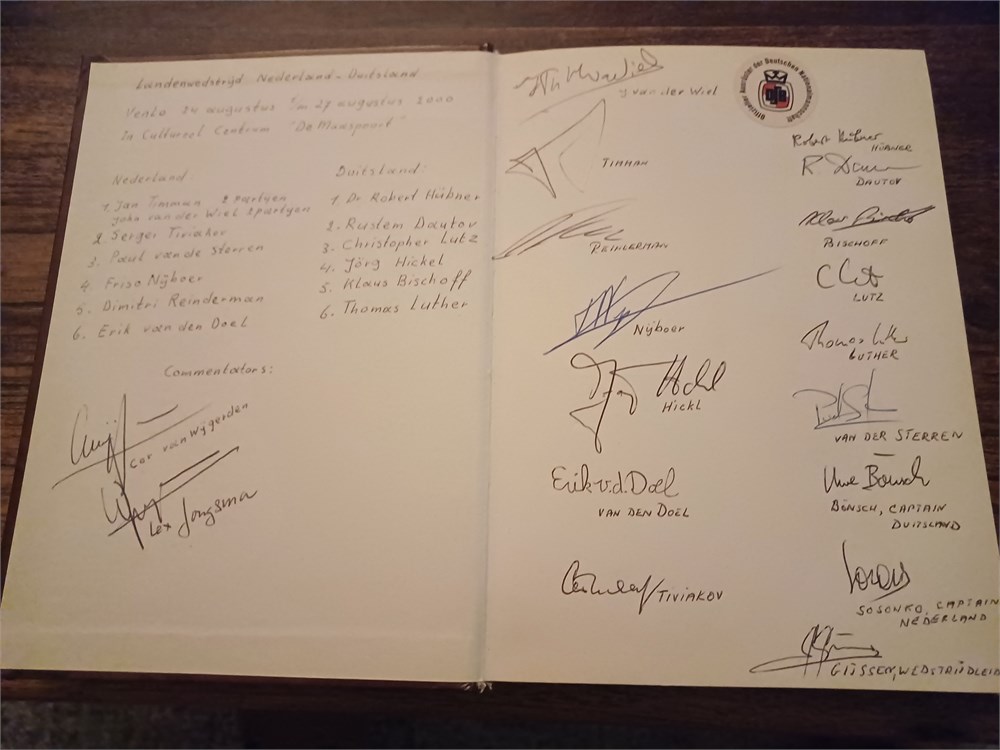 Landenwedstrijd Nederland - Duitsland
Venlo 24 augustus t/m 27 augustus 2000
In Cultureel Centrum "De Maaspoort"
Nederland:
1. Jan Timman 2 partyen
John van der Wiel 2 partyen
2. Serger Tiviakov
3. Paul van de Sterren
4. Friso Nÿboer
5. Dimitri Reinderman
6. Erik van den Doel
Duitsland:
1. Dr Robert Hübner
2. Rustem Dautov
3. Christopher Lutz
4. Jörg Hickel
5. Klaus Bischoff
6. Thomas Luther
Commentators:
Cor van Wÿgerden
Lex Jongsma
J van der Wiel
TIMMAN
REINDERMAN
Nÿboer
Hickl
Erik v.d. Doel
VAN DEN DOEL
TIVIAKOV
Offizieller Ausrüster der Deutschen Nationalmannschaft
Robert Hübner
HÜBNER
R. Dautov
DAUTOV
Klaus Bischoff
BISCHOFF
C Lutz
LUTZ
Thomas Luther
LUTHER
VAN DER STERREN
Uwe Bönsch
BÖNSCH, CAPTAIN
DUITSLAND
SOSONKO, CAPTAIN
NEDERLAND
GÿSSEN, WEDSTRÿDLEID